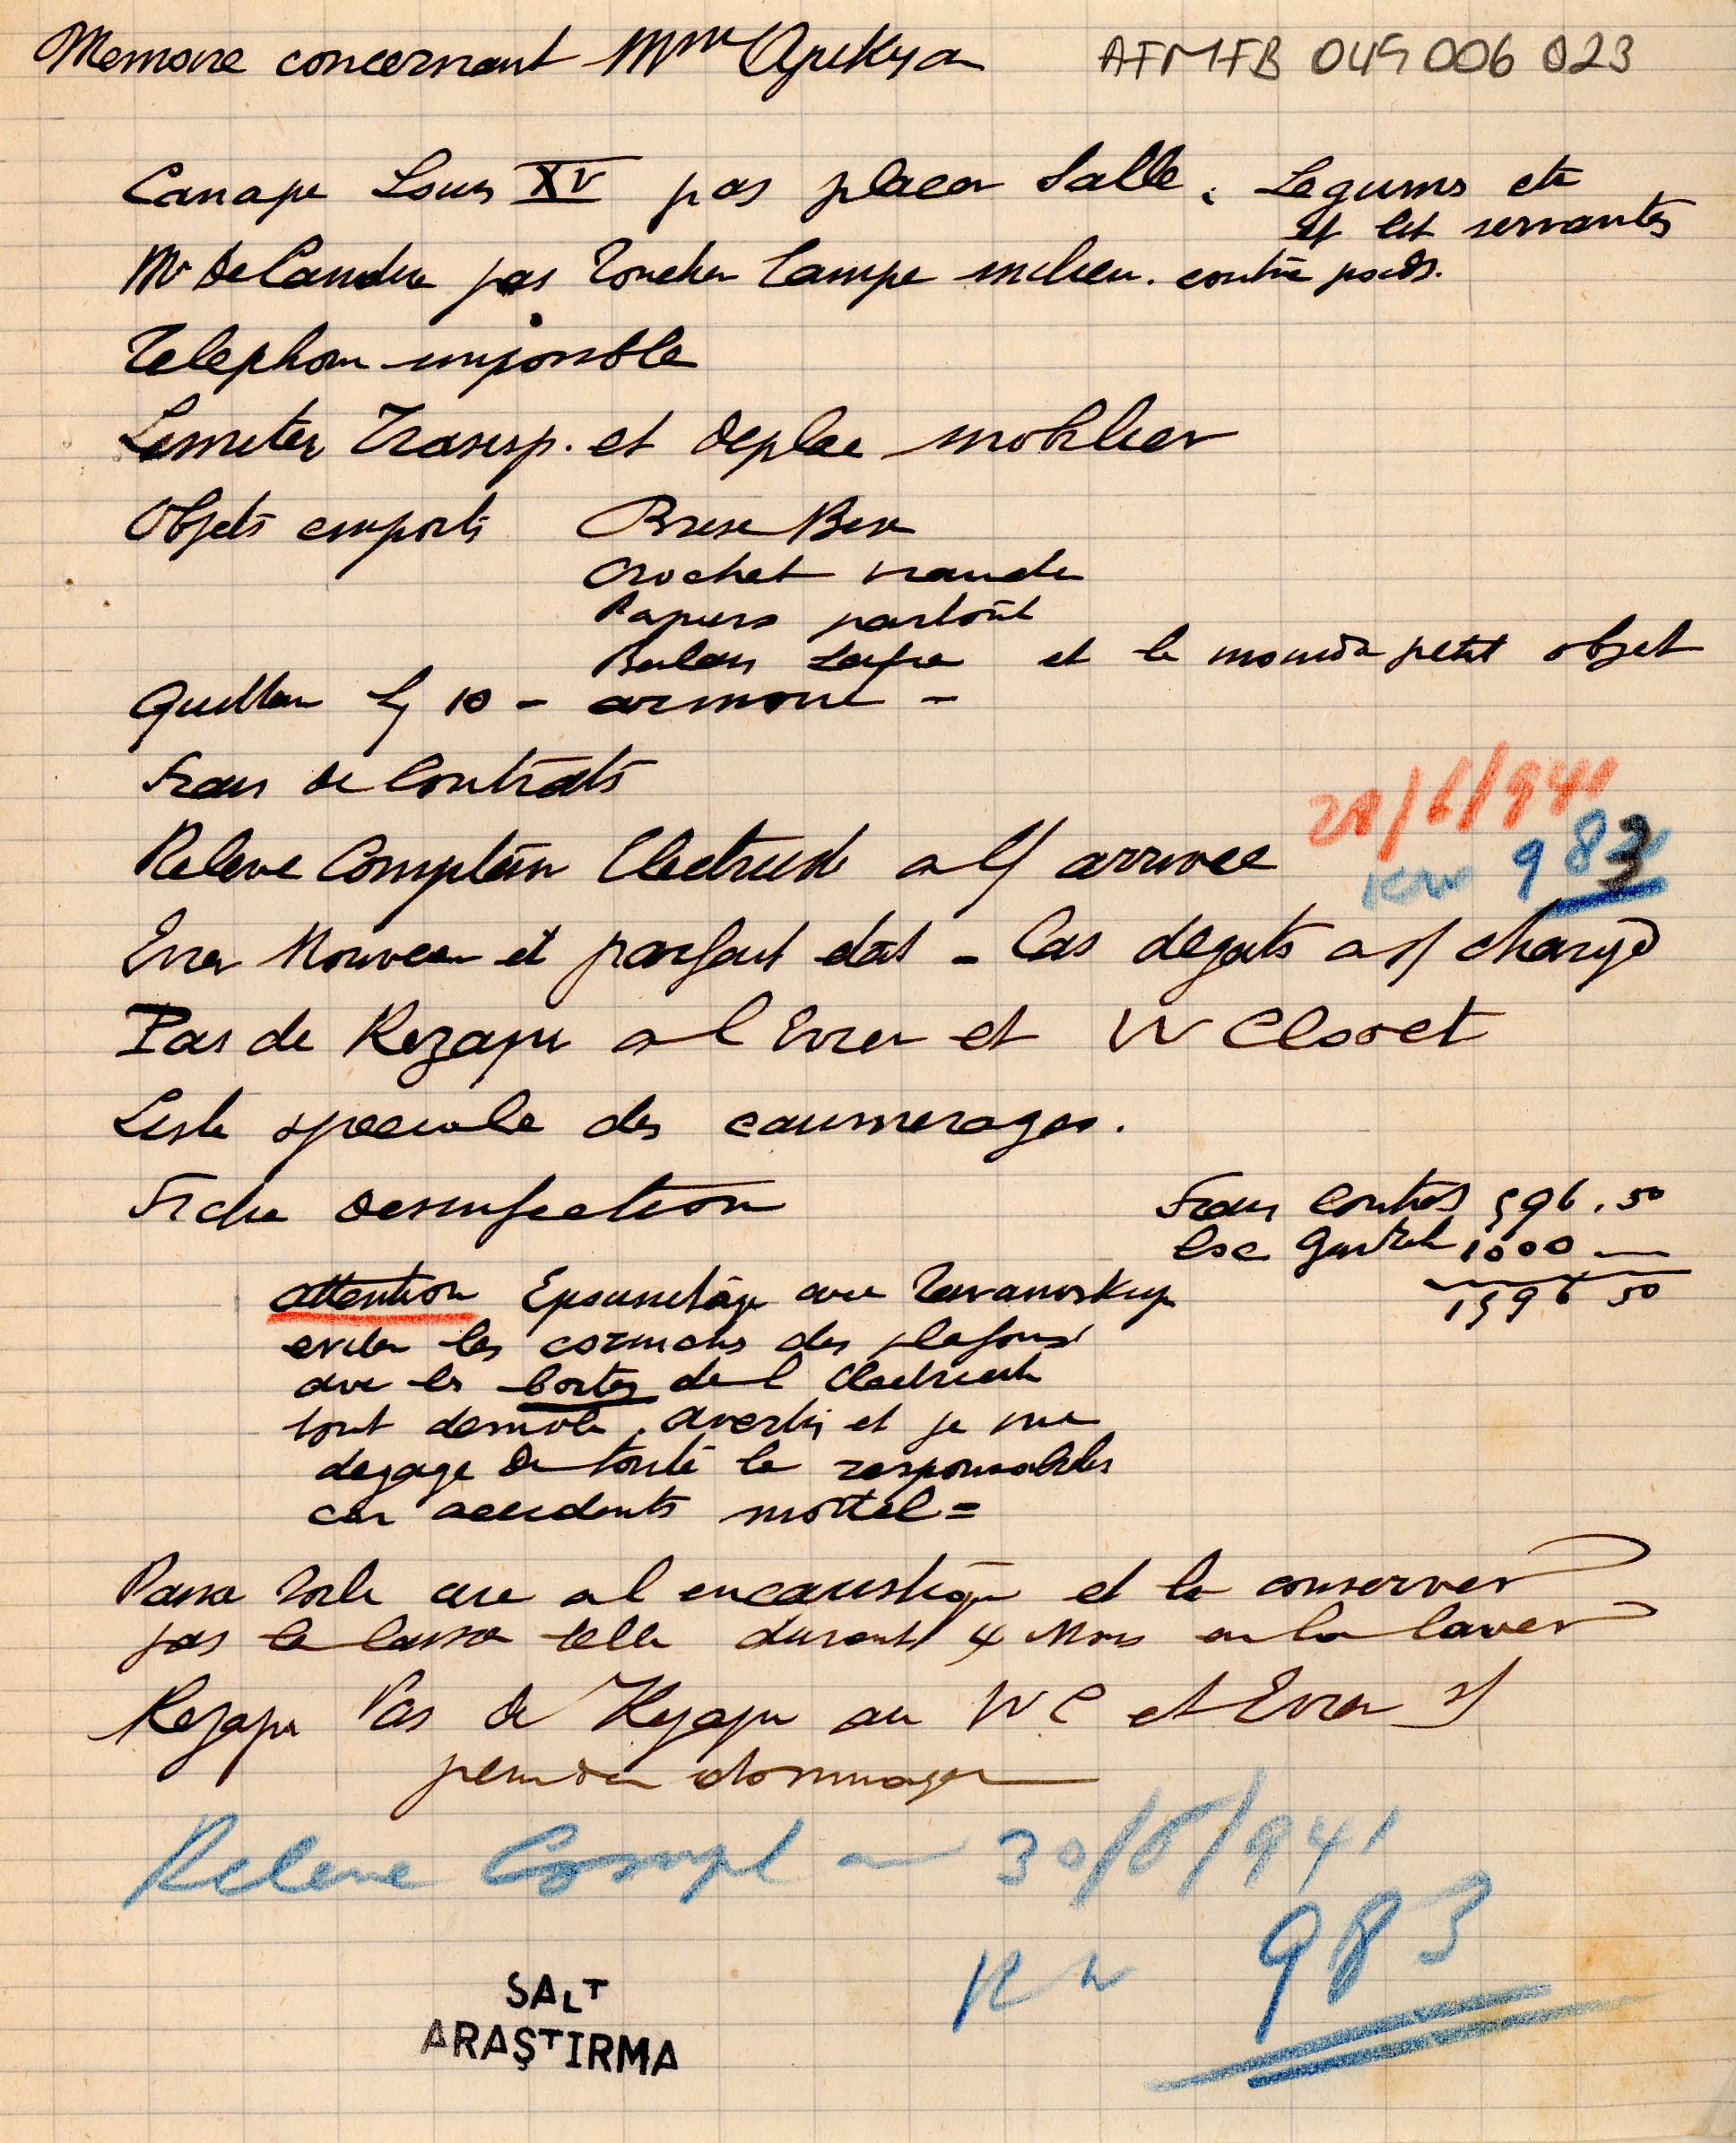 Memoire concernant Mme Apikya
AFMFB 045 006 023
Canape Louis XV pas placer Salle. Legums etc
et lit servantes
Mr De Candia pas toucher lampe milieu. contre poids.
Telephon impossible
Limiter Transp. et deplac mobilier
Objets emports Brise Bise
Crochet viande
Papiers partout
Balais et le moindr petit objet
10 - armoire -
Frais de Contrats
Releve Compteur Electricit a l/ arrivee
21/6/941
Kw 983
Evier Nouveau et parfait etat - Cas degats a s/ charge
Pas de Kezapu a l Evier et W Closet
Liste speciale des
Fiche desinfection
Frais Contrats 596.50
1000 —
1596 50
attention avec Tavanoskup
eviter les cornichs des plafons
ave les boites de l Electricit
tout demoli, averti et je me
degage de toute la responsabilits
car accidents mortel =
Passe Toile cire a l encaustique et la conserver
pas la laissa telle durant 4 Mois ou la laver
Kezapu Pas de Kezapu au WC et Evier s/
dommages
Releve Compl au 30/6/941
Kw 983
SALT
ARAŞTIRMA